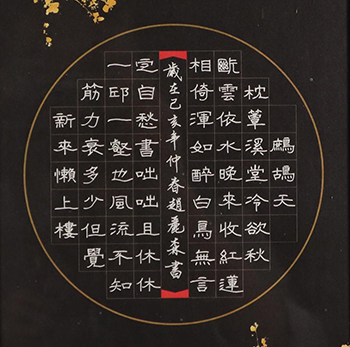 鷓鴣天
枕簟溪堂冷欲秋
斷雲依水晚來收紅蓮
相倚渾如醉白鳥無言
歲在己亥年仲春趙麗森書
定自愁書咄咄且休休
一邱一壑也風流不知
筋力衰多少但覺
新來懶上樓